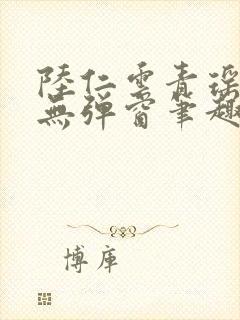 陸仁雲青瑤
無彈窗筆趣
博庫